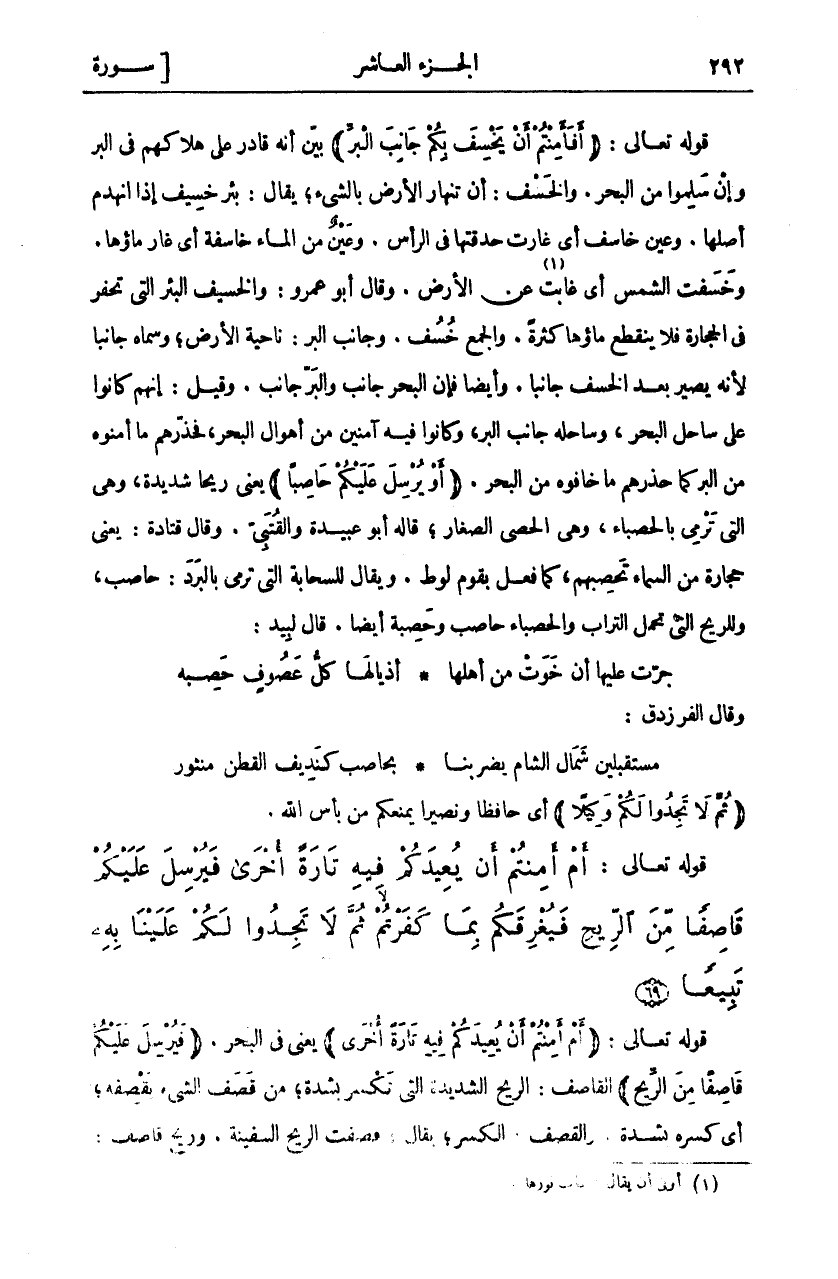 ٢٩٢ الجزء العاشر [ سورة
قوله تعالى : ﴿ أَفَأَمِنْتُمْ أَنْ يَخْسِفَ بِكُمْ جَانِبَ الْبَرِّ ﴾ بيّن أنه قادر على هلاكهم فى البر
وإنْ سَلِموا من البحر . والخَسْف : أن تنهار الأرض بالشىء؛ يقال : بئر خسيف إذا انهدم
أصلها . وعين خاسف أى غارت حدقتها فى الرأس . وعَيْنٌ من المـاء خاسفة أى غار ماؤها .
وخَسَفت الشمس أى غابت (١) عن الأرض . وقال أبو عمرو : والخسيف البئر التى تحفر
فى الحجارة فلا ينقطع ماؤها كثرةً . والجمع خُسُف . وجانب البر : ناحية الأرض؛ وسماه جانبا
لأنه يصير بعد الخسف جانبا . وأيضا فإن البحر جانب والبَرّ جانب . وقيل : إنهم كانوا
على ساحل البحر ، وساحله جانب البر، وكانوا فيه آمنين من أهوال البحر، فحذّرهم ما أمنوه
من البر كما حذرهم ما خافوه من البحر . ﴿ أَوْ يُرْسِلَ عَلَيْكُمْ حَاصِبًا ﴾ يعنى ريحا شديدة، وهى
التى تَرْمِى بالحصباء ، وهى الحصى الصغار ؛ قاله أبو عبيدة والقُتَبِىّ . وقال قتادة : يعنى
حجارة من السماء تَحصِبهم، كما فعل بقوم لوط . ويقال للسحابة التى ترمى بالبَرَد : حاصب،
وللريح التى تحمل التراب والحصباء حاصب وحَصِبة أيضا . قال لبيد :
جرّت عليها أن خَوَتْ من أهلها * أذيالهَا كلُّ عَصُوفٍ حَصِبه
وقال الفرزدق :
مستقبلين شَمَال الشام يضربنا * بحاصب كنَدِيف القطن منثور
﴿ ثُمَّ لَا تَجِدُوا لَكُمْ وَكِيلًا ﴾ أى حافظا ونصيرا يمنعكم من بأس الله .
قوله تعالى : أَمْ أَمِنتُمْ أَن يُعِيدَكُمْ فِيهِ تَارَةً أُخْرَىٰ فَيُرْسِلَ عَلَيْكُمْ
قَاصِفًا مِّنَ ٱلرِّيحِ فَيُغْرِقَكُم بِمَا كَفَرْتُمْ ۙ ثُمَّ لَا تَجِدُوا لَكُمْ عَلَيْنَا بِهِۦ
تَبِيعًا ٦٩
قوله تعالى : ﴿ أَمْ أَمِنْتُمْ أَنْ يُعِيدَكُمْ فِيهِ تَارَةً أُخْرَى ﴾ يعنى فى البحر . ﴿ فَيُرْسِلَ عَلَيْكُمْ
قَاصِفًا مِنَ الرِّيحِ ﴾ القاصف : الريح الشديدة التى تَكْسِر بشدة؛ من قَصَف الشىء يَقْصِفه؛
أى كسره بشدة . والقصف : الكسر؛ يقال : قصفت الريح السفينة . وريح قاصف :
(١) أولى أن يقال : نورها .